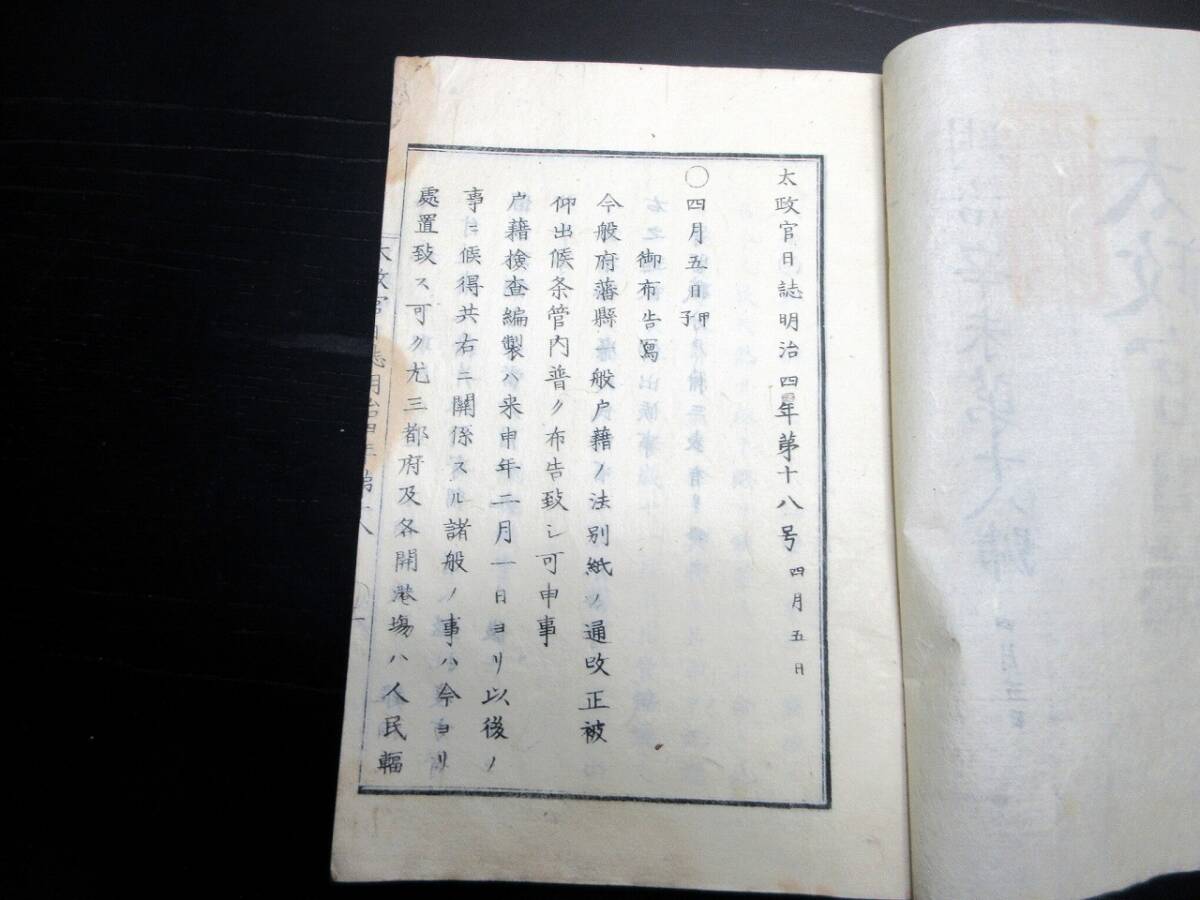 太政官日誌明治四年第十八号 四月五日
〇四月五日甲子
御布告寫
今般府藩縣一般戸籍ノ法別紙ノ通改正被
仰出候条管内普ク布告致シ可申事
戸籍檢査編製ハ来申年二月一日ヨリ以後ノ
事ニ候得共右ニ關係スル諸般ノ事ハ今ヨリ
處置致ス可ク尤三都府及各開港場ハ人民輻
太政官日誌明治四年第十八